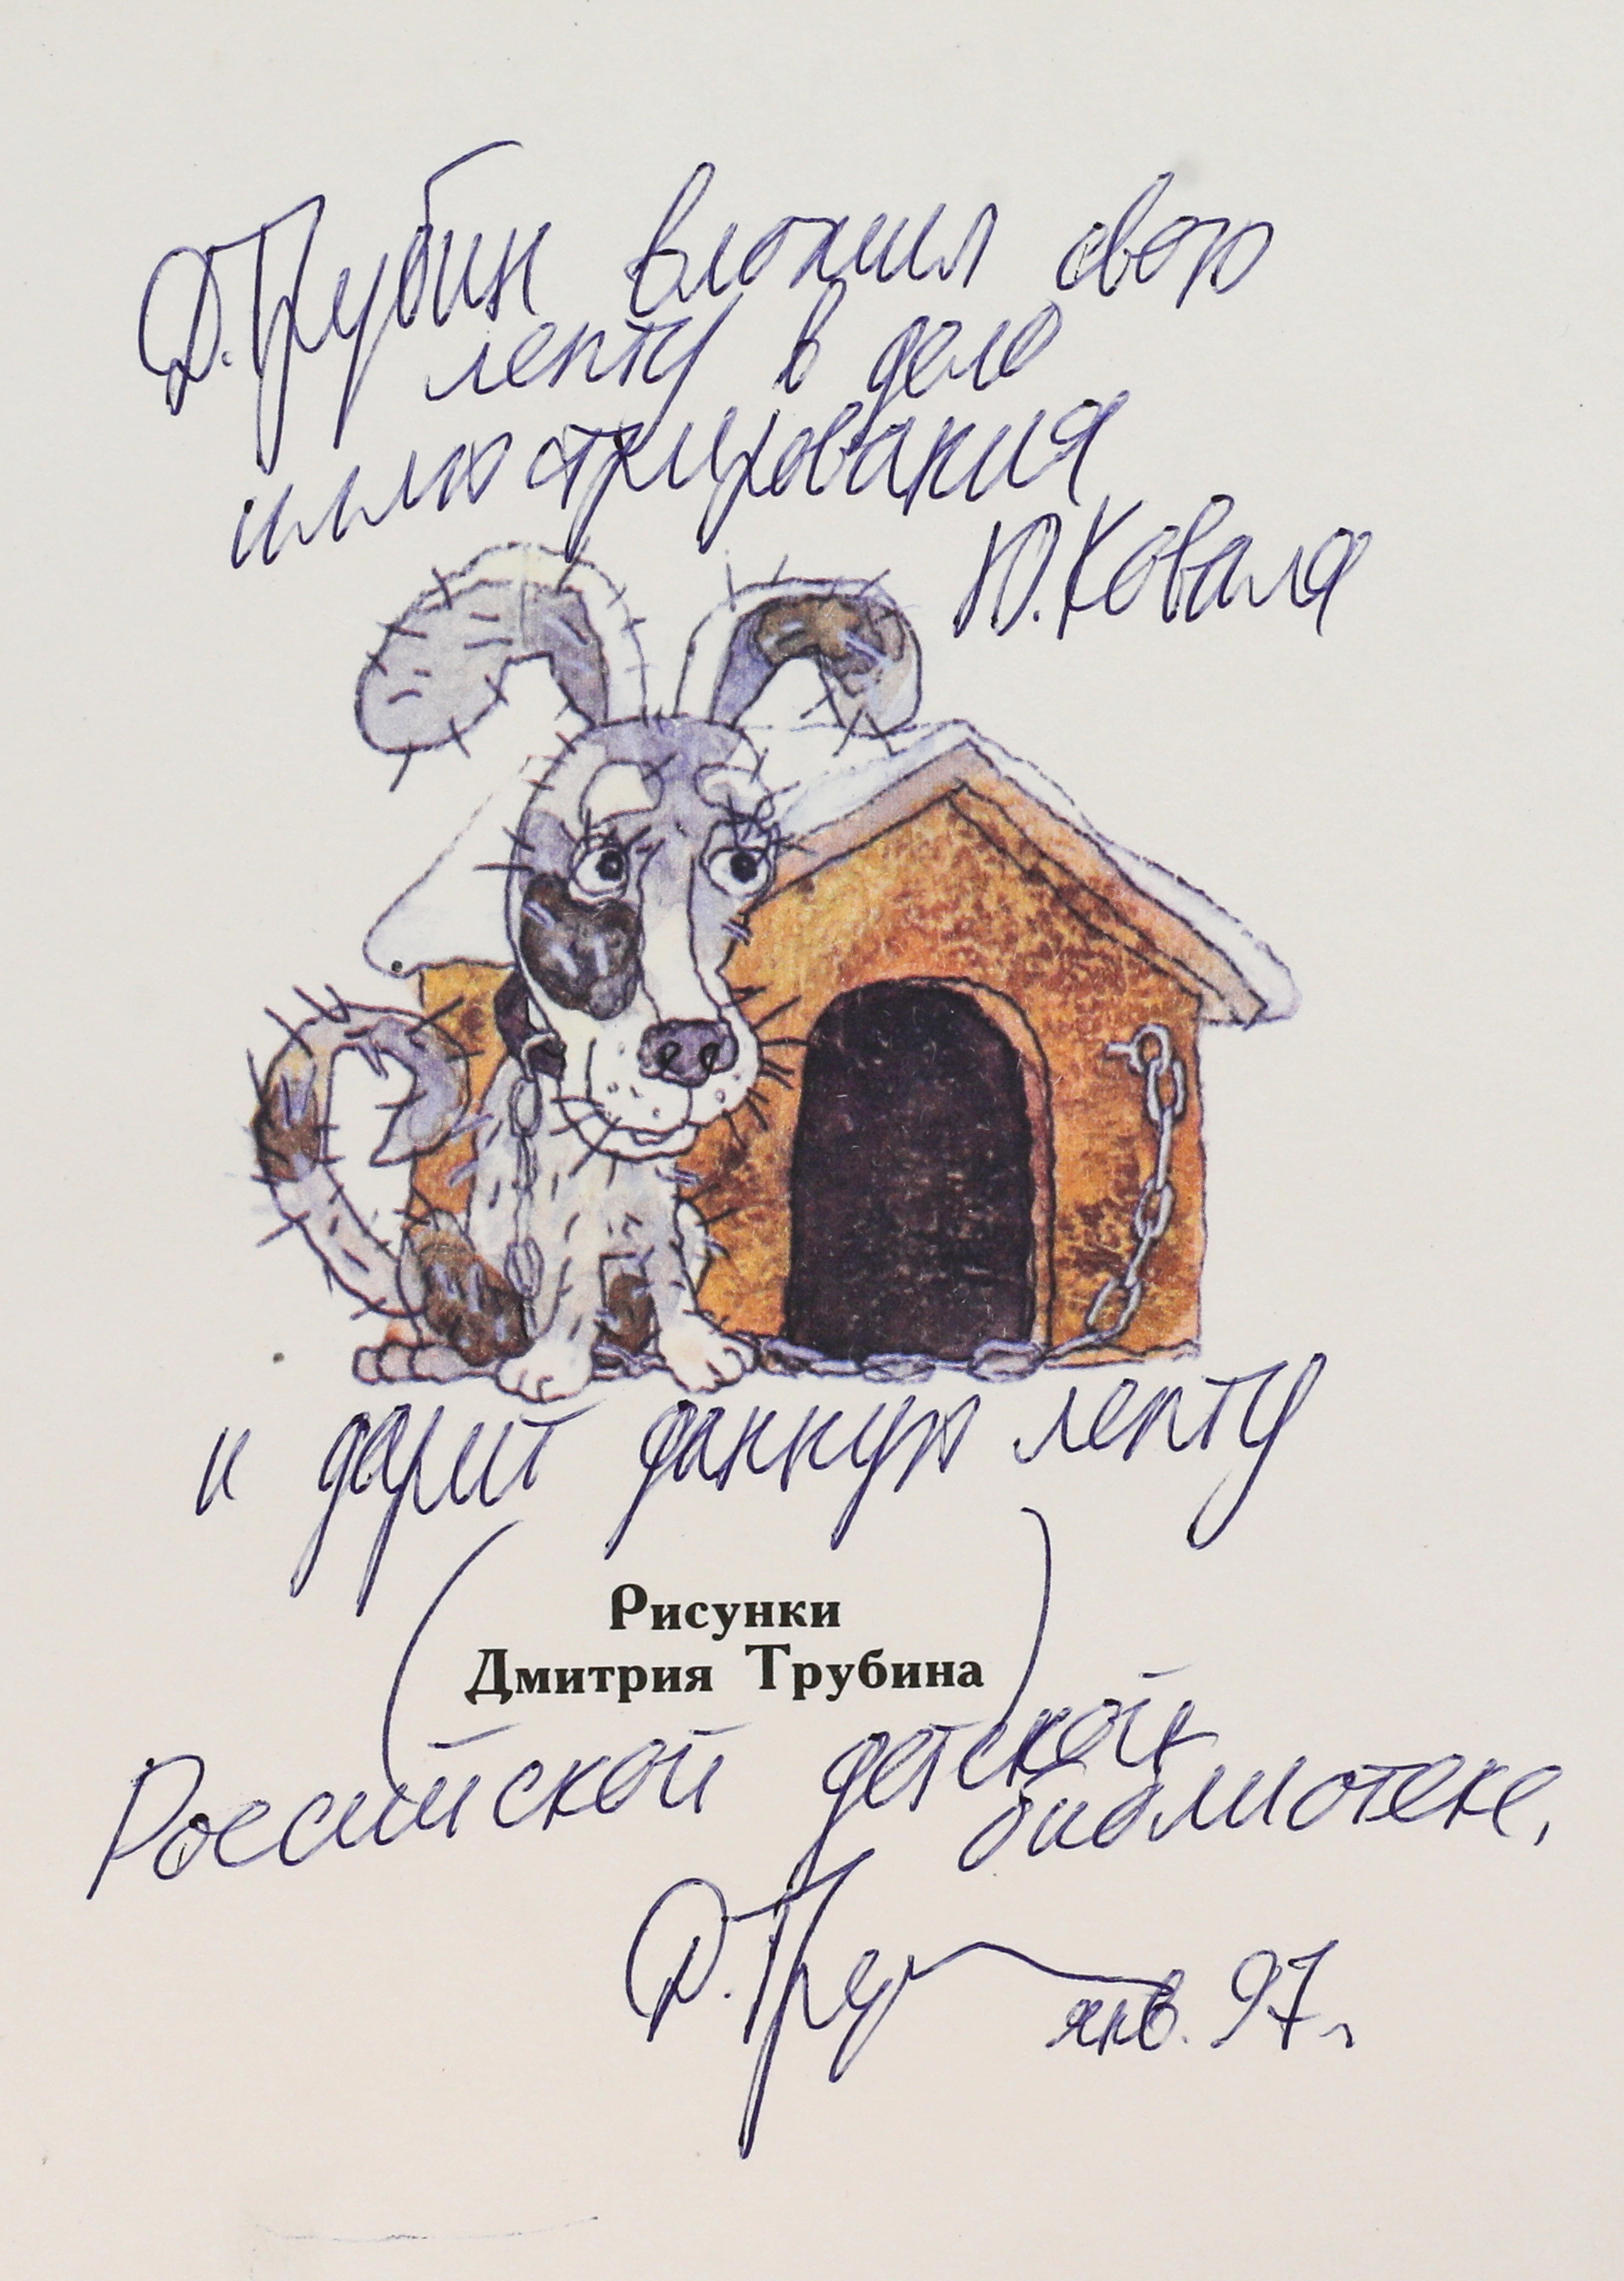 Д. Трубин вложил свою
лепту в дело
иллюстрирования
Ю. Коваля
и дарит данную лепту
Рисунки
Дмитрия Трубина
Российской детской
библиотеке.
Д. Тру
янв. 97 г.